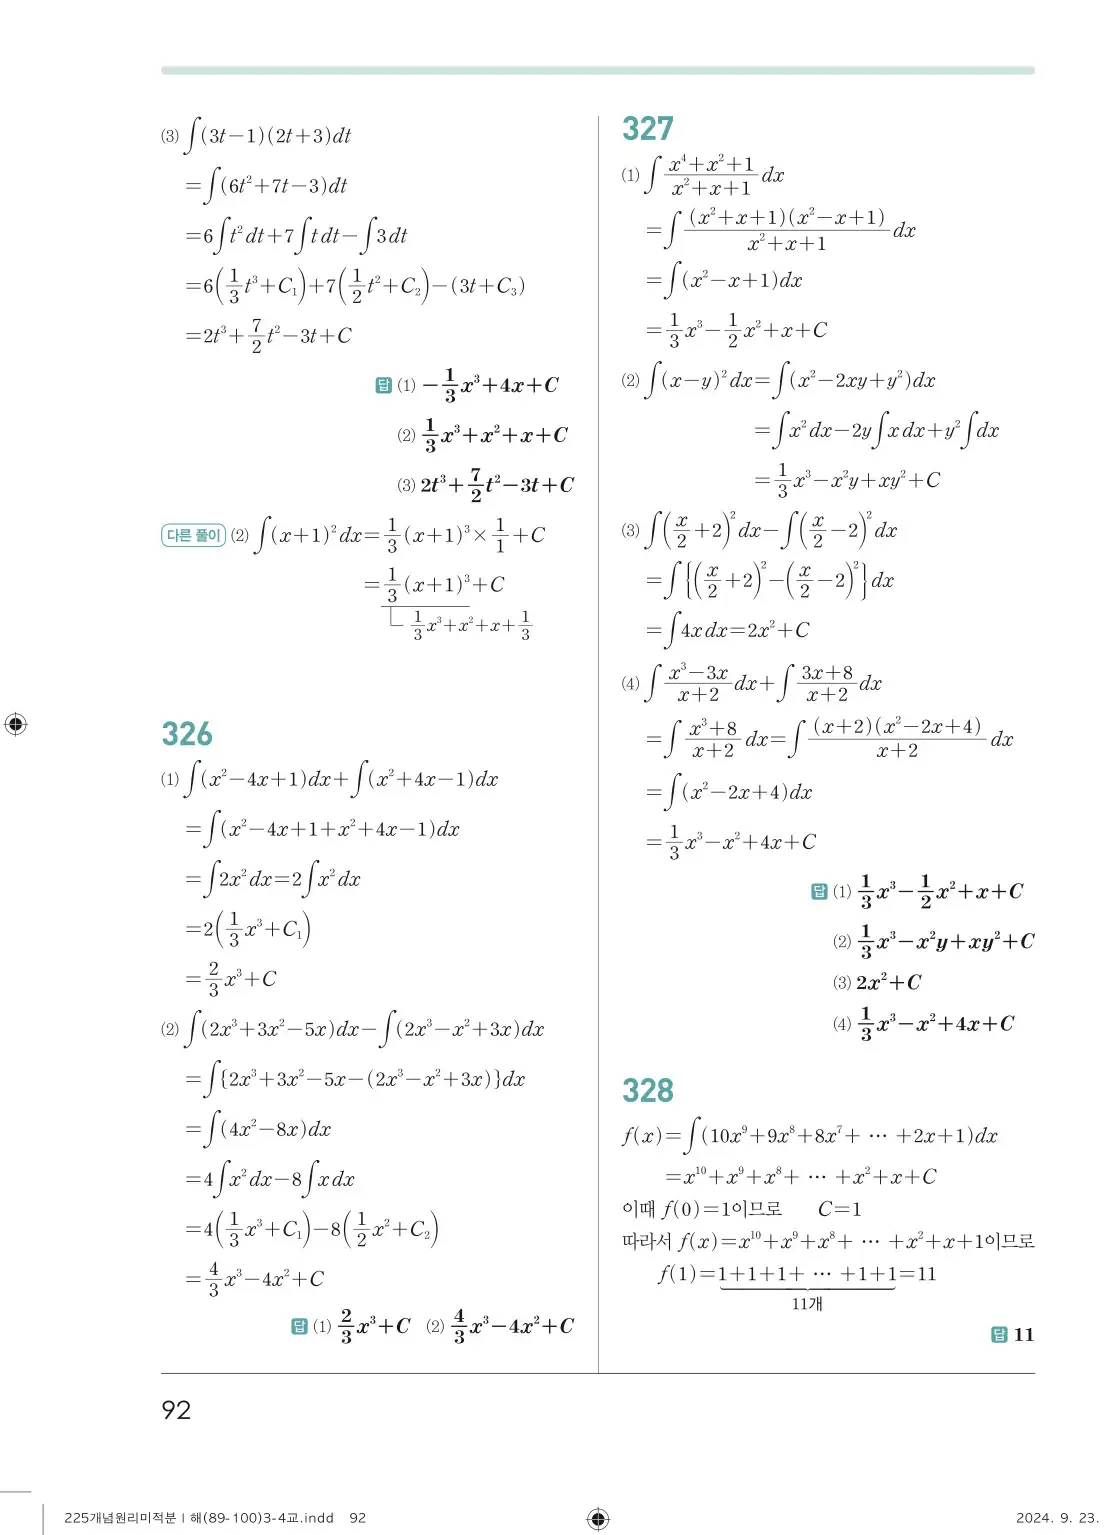 (3) ∫(3t−1)(2t+3)dt
=∫(6t²+7t−3)dt
=6∫t²dt+7∫t dt−∫3dt
=6(1/3 t³+C₁)+7(1/2 t²+C₂)−(3t+C₃)
=2t³+7/2 t²−3t+C
답 (1) −1/3 x³+4x+C
(2) 1/3 x³+x²+x+C
(3) 2t³+7/2 t²−3t+C
다른 풀이 (2) ∫(x+1)²dx=1/3 (x+1)³×1/1+C
=1/3 (x+1)³+C
1/3 x³+x²+x+1/3
326
(1) ∫(x²−4x+1)dx+∫(x²+4x−1)dx
=∫(x²−4x+1+x²+4x−1)dx
=∫2x²dx=2∫x²dx
=2(1/3 x³+C₁)
=2/3 x³+C
(2) ∫(2x³+3x²−5x)dx−∫(2x³−x²+3x)dx
=∫{2x³+3x²−5x−(2x³−x²+3x)}dx
=∫(4x²−8x)dx
=4∫x²dx−8∫x dx
=4(1/3 x³+C₁)−8(1/2 x²+C₂)
=4/3 x³−4x²+C
답 (1) 2/3 x³+C (2) 4/3 x³−4x²+C
327
(1) ∫ (x⁴+x²+1)/(x²+x+1) dx
=∫ (x²+x+1)(x²−x+1)/(x²+x+1) dx
=∫(x²−x+1)dx
=1/3 x³−1/2 x²+x+C
(2) ∫(x−y)²dx=∫(x²−2xy+y²)dx
=∫x²dx−2y∫x dx+y²∫dx
=1/3 x³−x²y+xy²+C
(3) ∫(x/2+2)²dx−∫(x/2−2)²dx
=∫{(x/2+2)²−(x/2−2)²}dx
=∫4x dx=2x²+C
(4) ∫ (x³−3x)/(x+2) dx+∫ (3x+8)/(x+2) dx
=∫ (x³+8)/(x+2) dx=∫ (x+2)(x²−2x+4)/(x+2) dx
=∫(x²−2x+4)dx
=1/3 x³−x²+4x+C
답 (1) 1/3 x³−1/2 x²+x+C
(2) 1/3 x³−x²y+xy²+C
(3) 2x²+C
(4) 1/3 x³−x²+4x+C
328
f(x)=∫(10x⁹+9x⁸+8x⁷+ ⋯ +2x+1)dx
=x¹⁰+x⁹+x⁸+ ⋯ +x²+x+C
이때 f(0)=1이므로 C=1
따라서 f(x)=x¹⁰+x⁹+x⁸+ ⋯ +x²+x+1이므로
f(1)=1+1+1+ ⋯ +1+1=11
11개
답 11
92
225개념원리미적분Ⅰ해(89-100)3-4교.indd 92
2024. 9. 23.